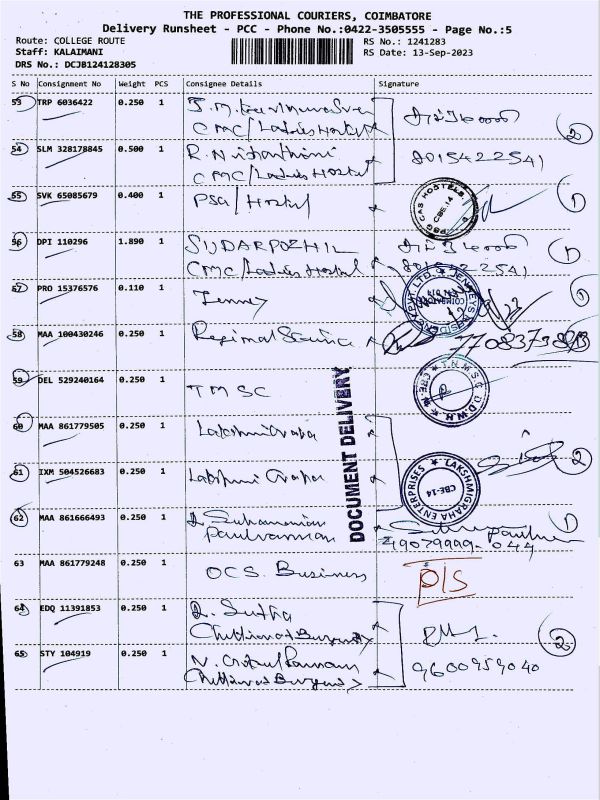 THE PROFESSIONAL COURIERS, COIMBATORE
Delivery Runsheet - PCC - Phone No.:0422-3505555 - Page No.:5
Route: COLLEGE ROUTE
RS No.: 1241283
Staff: KALAIMANI
RS Date: 13-Sep-2023
DRS No.: DCJB124128305
S No Consignment No Weight PCS Consignee Details Signature
53 TRP 6036422 0.250 1
CMC/Ladies Hostel
2
54 SLM 328178845 0.500 1 R. Nishanthini 8015422541
CMC/Ladies Hostel
55 SVK 65085679 0.400 1 PSG/Hostel PSG CAS HOSTELS CBE-14 1
56 DPI 110296 1.890 1 SUDARPOZHIL 1
CMC/Ladies Hostel 8015422541
57 PRO 15376576 0.110 1 1
58 MAA 100430246 0.250 1 Regional Science
59 DEL 529240164 0.250 1 TMSC
DOCUMENT DELIVERY
60 MAA 861779505 0.250 1 Lakshmi Graha
2
61 IXM 504526683 0.250 1 Lakshmi Graha LAKSHMIGRAHA ENTERPRISES CBE-14
62 MAA 861666493 0.250 1 1
49079999-044
63 MAA 861779248 0.250 1 OCS. Business P/S
64 EDQ 11391853 0.250 1 D. Sutha
2
65 STY 104919 0.250 1 9600959040